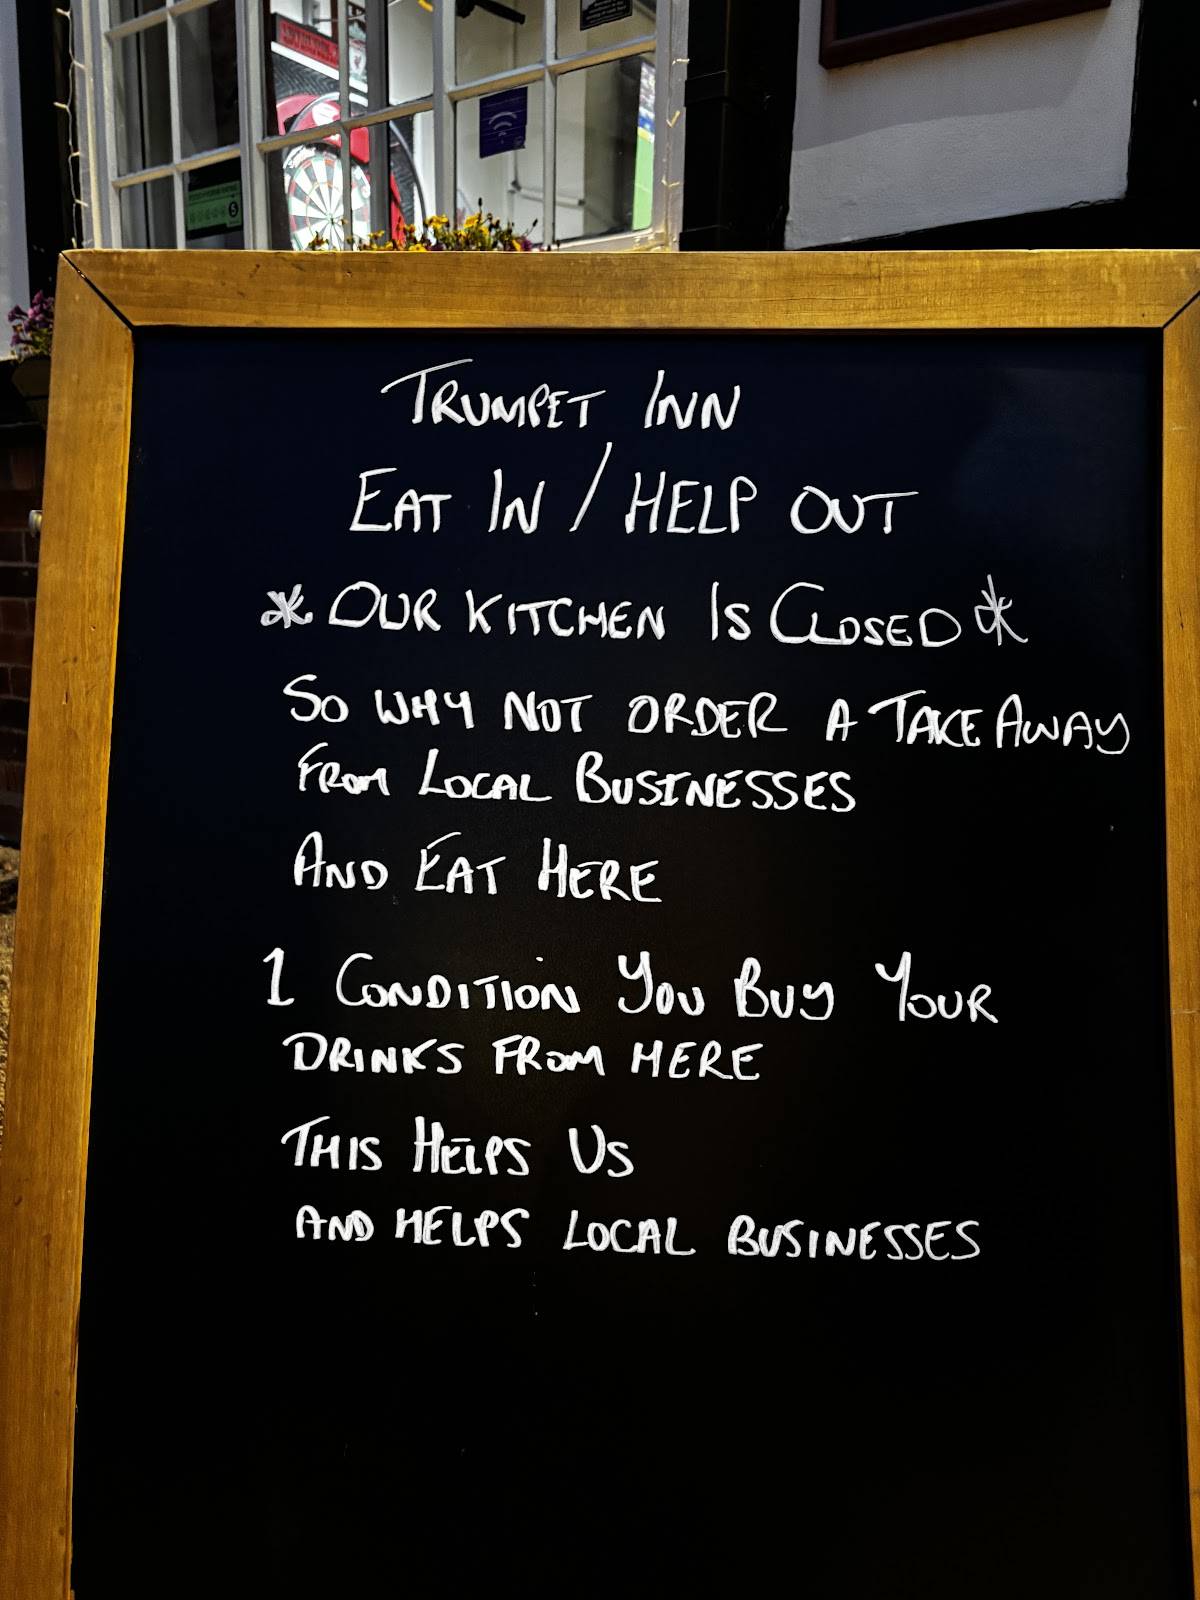 TRUMPET INN
EAT IN / HELP OUT
* OUR KITCHEN IS CLOSED *
SO WHY NOT ORDER A TAKE AWAY
FROM LOCAL BUSINESSES
AND EAT HERE
1 CONDITION YOU BUY YOUR
DRINKS FROM HERE
THIS HELPS US
AND HELPS LOCAL BUSINESSES